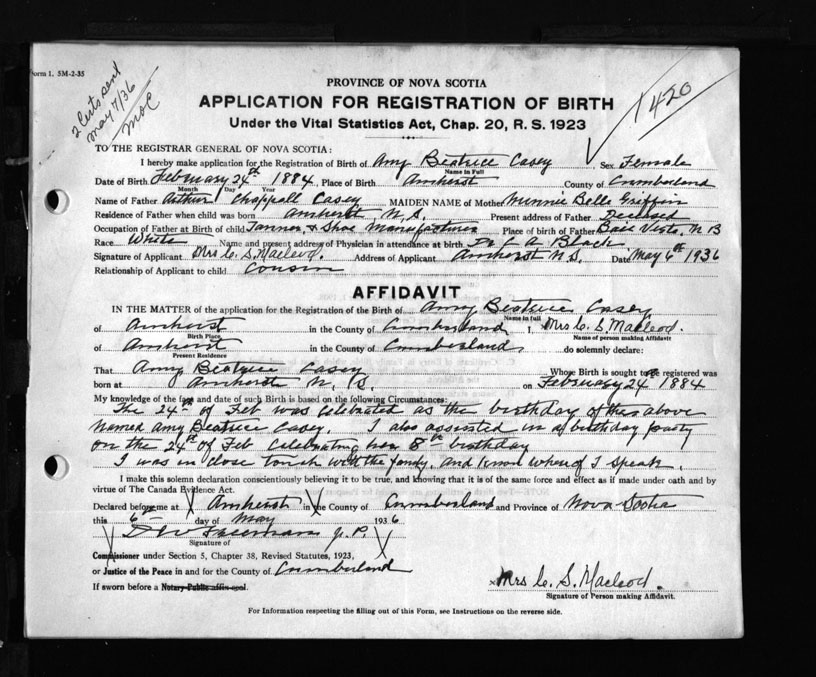 Form 1. 5M-2-35
2 Certs sent
May 7/36
MOC
1420
PROVINCE OF NOVA SCOTIA
APPLICATION FOR REGISTRATION OF BIRTH
Under the Vital Statistics Act, Chap. 20, R. S. 1923
TO THE REGISTRAR GENERAL OF NOVA SCOTIA:
I hereby make application for the Registration of Birth of Amy Beatrice Casey Sex Female
Name in Full
Date of Birth February 24th 1884 Place of Birth Amherst County of Cumberland
Month Day Year
Name of Father Arthur Chappall Casey MAIDEN NAME of Mother Minnie Belle Griffin
Residence of Father when child was born Amherst, N. S. Present address of Father Deceased
Occupation of Father at Birth of child Tanner & Shoe Manufacturer Place of birth of Father Baie Verte, N B
Race White Name and present address of Physician in attendance at birth Dr C A Black
Signature of Applicant Mrs C. S. Macleod. Address of Applicant Amherst N.S. Date May 6th 1936
Relationship of Applicant to child Cousin
AFFIDAVIT
IN THE MATTER of the application for the Registration of the Birth of Amy Beatrice Casey
Name in full
of Amherst in the County of Cumberland I, Mrs C. S. Macleod.
Birth Place Name of person making Affidavit
of Amherst in the County of Cumberland, do solemnly declare:
Present Residence
That Amy Beatrice Casey Whose Birth is sought to be registered was
born at Amherst N. S. on February 24th 1884
My knowledge of the fact and date of such Birth is based on the following Circumstances:
The 24th of Feb was celebrated as the birthday of the above
named Amy Beatrice Casey. I also assisted in a birthday party
on the 24th of Feb celebrating her 8th birthday
I was in close touch with the family, and know whereof I speak.
I make this solemn declaration conscientiously believing it to be true, and knowing that it is of the same force and effect as if made under oath and by
virtue of The Canada Evidence Act.
Declared before me at Amherst in the County of Cumberland and Province of Nova Scotia
this 6th day of May 1936
Freeman J. P.
Signature of
Commissioner under Section 5, Chapter 38, Revised Statutes, 1923,
or Justice of the Peace in and for the County of Cumberland
If sworn before a Notary Public affix seal.
x Mrs C. S. Macleod.
Signature of Person making Affidavit.
For Information respecting the filling out of this Form, see Instructions on the reverse side.